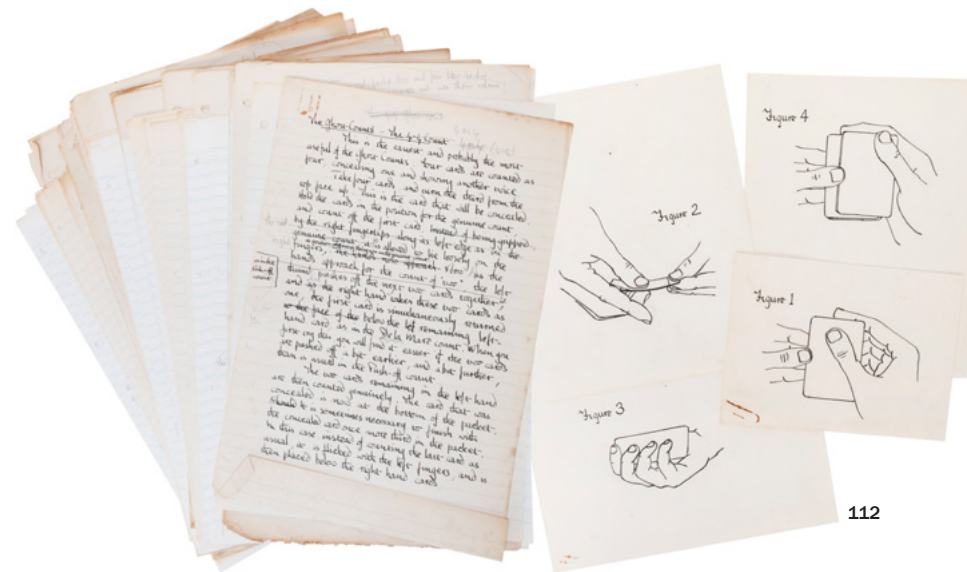 The Ghost Counts – The 4-4 Count
This is the easiest and probably the most
useful of the Ghost Counts. Four cards are counted as
four, concealing one and showing another twice.
Take four cards, and turn the third from the
top face up. This is the card that will be concealed.
Hold the cards in the position for the genuine count
and count off the first card. Instead of being gripped
by the right fingertips along its left edge as in the
genuine count it is allowed to lie loosely on the
fingers, Now, as the
hands approach for the count of "two" the left
thumb pushes off the next two cards together,
and as the right hand takes these two cards as
one, the first card is simultaneously returned
to the face of the below the left remaining left-
hand card, as in the count. When you
first try this you will find it easier if the two cards
are pushed off a bit earlier, and a bit further,
than is usual in the Push-off count.
The two cards remaining in the left hand
are then counted genuinely. The card that was
concealed is now at the bottom of the packet.
Should it is sometimes necessary to finish with
the concealed card once more third in the packet.
In this case instead of counting the last card as
usual it is flicked with the left fingers, and is
then placed below the right hand cards
Figure 2
Figure 3
Figure 4
Figure 1
112